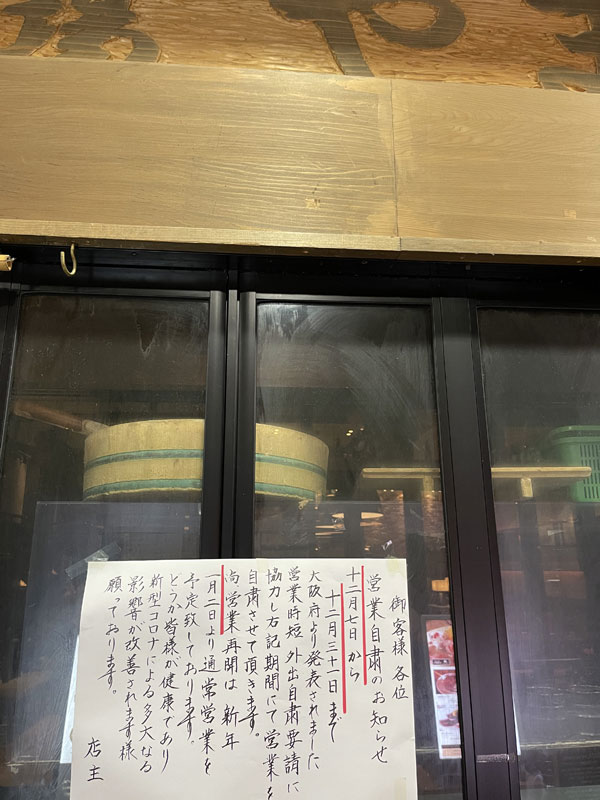 御客様各位
営業自粛のお知らせ
十二月七日から
十二月三十一日まで
大阪府より発表されました
営業時短 外出自粛要請に
協力し右記期間にて営業を
自粛させて頂きます。
尚営業再開は 新年
一月二日より通常営業を
予定致しております。
どうか皆様が健康であり
新型コロナによる多大なる
影響が改善されます様
願っております。
店主